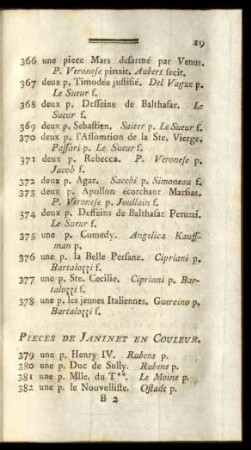 19
366 une piece Mars desarmé par Venus.
P. Veronese pinxit. Aubert fecit.
367 deux p. Timodée justifié. Del Vague p.
Le Sueur f.
368 deux p. Desseins de Balthasar. Le
Sueur f.
369 deux p. Sebastien. Saiter p. Le Sueur f.
370 deux p. l'Assomtion de la Ste. Vierge.
Passari p. Le Sueur f.
371 deux p. Rebecca. P. Veronese p.
Jacob f.
372 deux p. Agar. Sacchi p. Simoneau f.
373 deux p. Apollon écorchant Marsias.
P. Veronese p. Joullain f.
374 deux p. Desseins de Balthasar Peruzzi.
Le Sueur f.
375 une p. Comedy. Angelica Kauff-
man p.
376 une p. la Belle Persane. Cipriani p.
Bartalozzi f.
377 une p. Ste. Cecilie. Cipriani p. Bar-
talozzi f.
378 une p. les jeunes Italiennes. Guercino p.
Bartalozzi f.
PIECES DE JANINET EN COULEUR.
379 une p. Henry IV. Rubens p.
380 une p. Duc de Sully. Rubens p.
381 une p. Mlle. du T**. Le Moine p.
382 une p. le Nouvelliste. Ostade p.
B 2